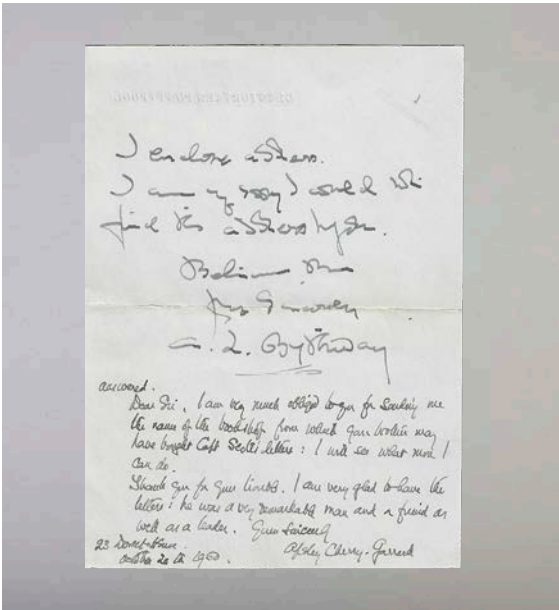 I enclose address.
I am very sorry I could not
find this address before.
Believe me
Yrs Sincerely
A. L. Bytheway
answered.
Dear Sir, I am very much obliged to you for sending me
the name of the bookshop from which your brother may
have bought Capt Scott's letters: I will see what more I
can do.
Thank you for your trouble. I am very glad to have the
letters: he was a very remarkable man and a friend as
well as a leader. Yours Sincerely
23 Dorset House
Apsley Cherry-Garrard
October 20th 1950.